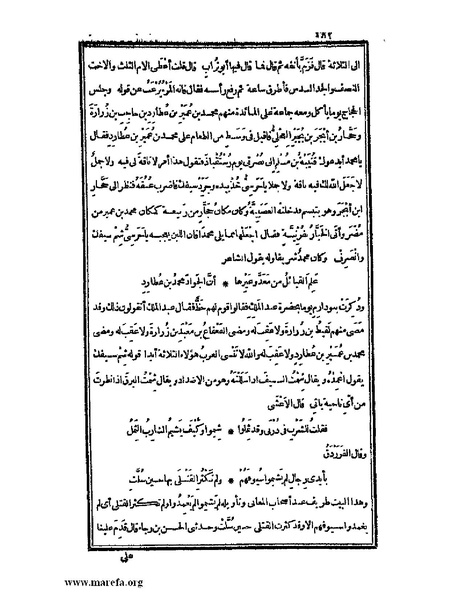 ١٨٢
الى الثلاثة قال فرم بأنفه ثم قال فما قال فيها أبو تراب قال قلت أعطى الام الثلث والاخت
النصف والجد السدس فأطرق ساعة ثم رفع رأسه فقال فانه المرء يرغب عن قوله وجلس
الحجاج يوما يأكل ومعه جماعة على المائدة منهم محمد بن عمير بن عطارد بن حاجب بن زرارة
وحجار بن أبجر بن بجير العجلى فاقبل فى وسط من الطعام على محمد بن عمير بن عطارد فقال
يا محمد أيدعوك قتيبة بن مسلم الى نصرتى يوم رستقباذ فتقول هذا أمر لا ناقة لى فيه ولا جمل
لا جعل الله لك فيه ناقة ولا جملا يا حرسى خذ بيده وجرد سيفك فاضرب عنقه فنظر الى حجار
ابن أبجر وهو يتبسم فدخلته العصبية وكان مكان حجار من ربيعة كمكان محمد بن عمير من
مضر وأتى الخباز بفرنية فقال اجعلها مما يلى محمدا فان اللبن يعجبه يا حرسى شم سيفك
وانصرف وكان محمد شريفا وله يقول الشاعر
علم القبائل من معد وغيرها * أن الجواد محمد بن عطارد
وذكرت بنو دارم يوما بحضرة عبد الملك فقالوا قوم لهم حظ فقال عبد الملك أتقولون ذلك وقد
مضى منهم لقيط بن زرارة ولا عقب له ومضى القعقاع بن معبد بن زرارة ولا عقب له ومضى
محمد بن عمير بن عطارد ولا عقب له والله لا تنسى العرب هؤلاء الثلاثة أبدا قوله شم سيفك
يقول اغمده ويقال شمت السيف اذا سللته وهو من الاضداد ويقال شمت البرق اذا نظرت
من أى ناحية يأتى قال الاعشى
فقلت للشرب فى درنى وقد ثملوا * شيموا وكيف يشيم الشارب الثمل
وقال الفرزدق
بأيدى رجال لم يشيموا سيوفهم * ولم تكثر القتلى بها حين سلت
وهذا البيت طريف عند أصحاب المعانى وتأويله لم يشيموا لم يغمدوا ولم تكثر القتلى أى لم
يغمدوا سيوفهم الا وقد كثرت القتلى حين سلت وحدثنى الحسن بن رجاء قال قدم علينا
على
www.marefa.org